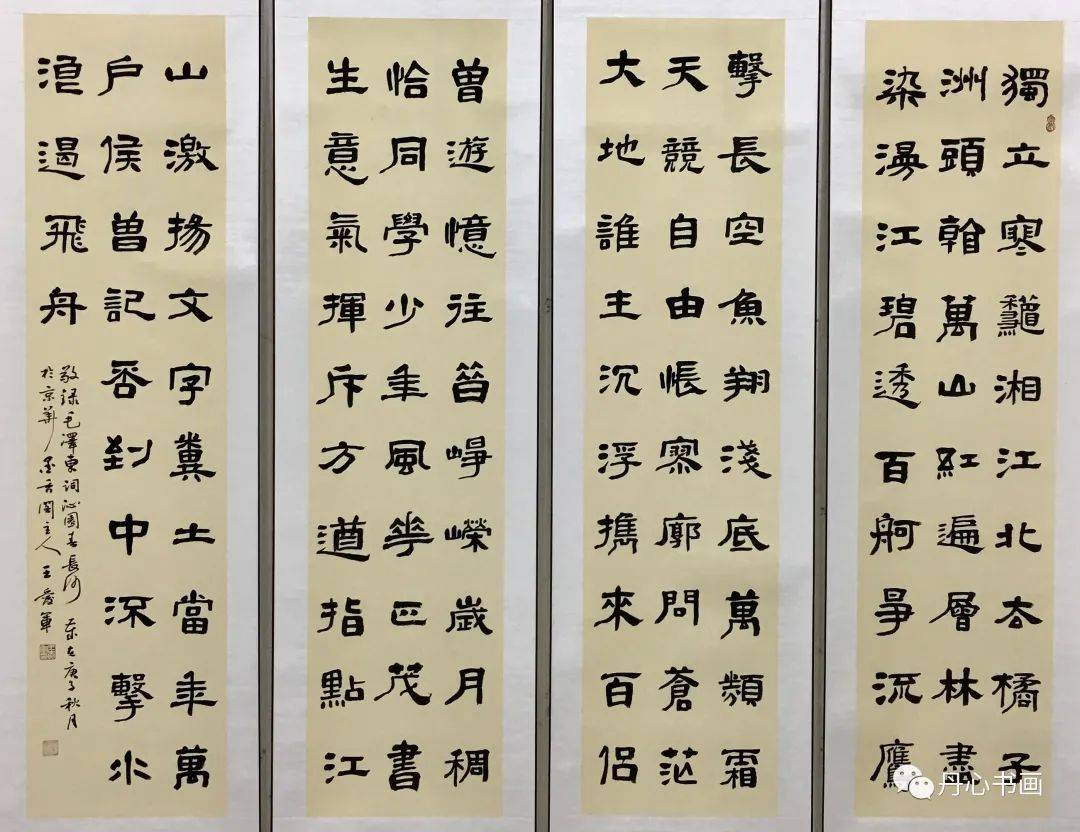 獨立寒龝湘江北去橘子
洲頭看萬山紅遍層林盡
染漫江碧透百舸爭流鷹
擊長空魚翔淺底萬類霜
天競自由悵寥廓問蒼茫
大地誰主沉浮攜來百侶
曾遊憶往昔崢嶸歲月稠
恰同學少年風華正茂書
生意氣揮斥方遒指點江
山激揚文字糞土當年萬
戶侯曾記否到中流擊水
浪遏飛舟
敬録毛澤東詞沁園春長沙 歲在庚子秋月
於京華 閣主人王愛軍
丹心书画